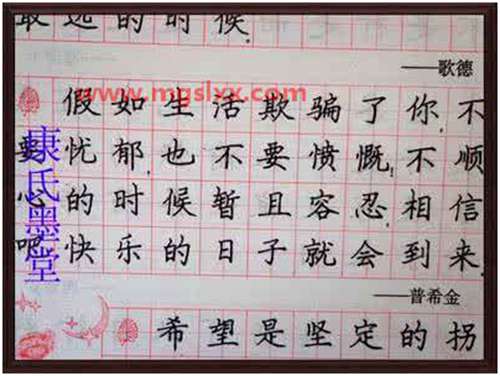 最远的时候.
——歌德
www.mgslxx.com
假如生活欺骗了你,不
要忧郁,也不要愤慨,不顺
心的时候暂且容忍,相信
吧,快乐的日子就会到来.
——普希金
希望是坚定的拐
康氏墨堂